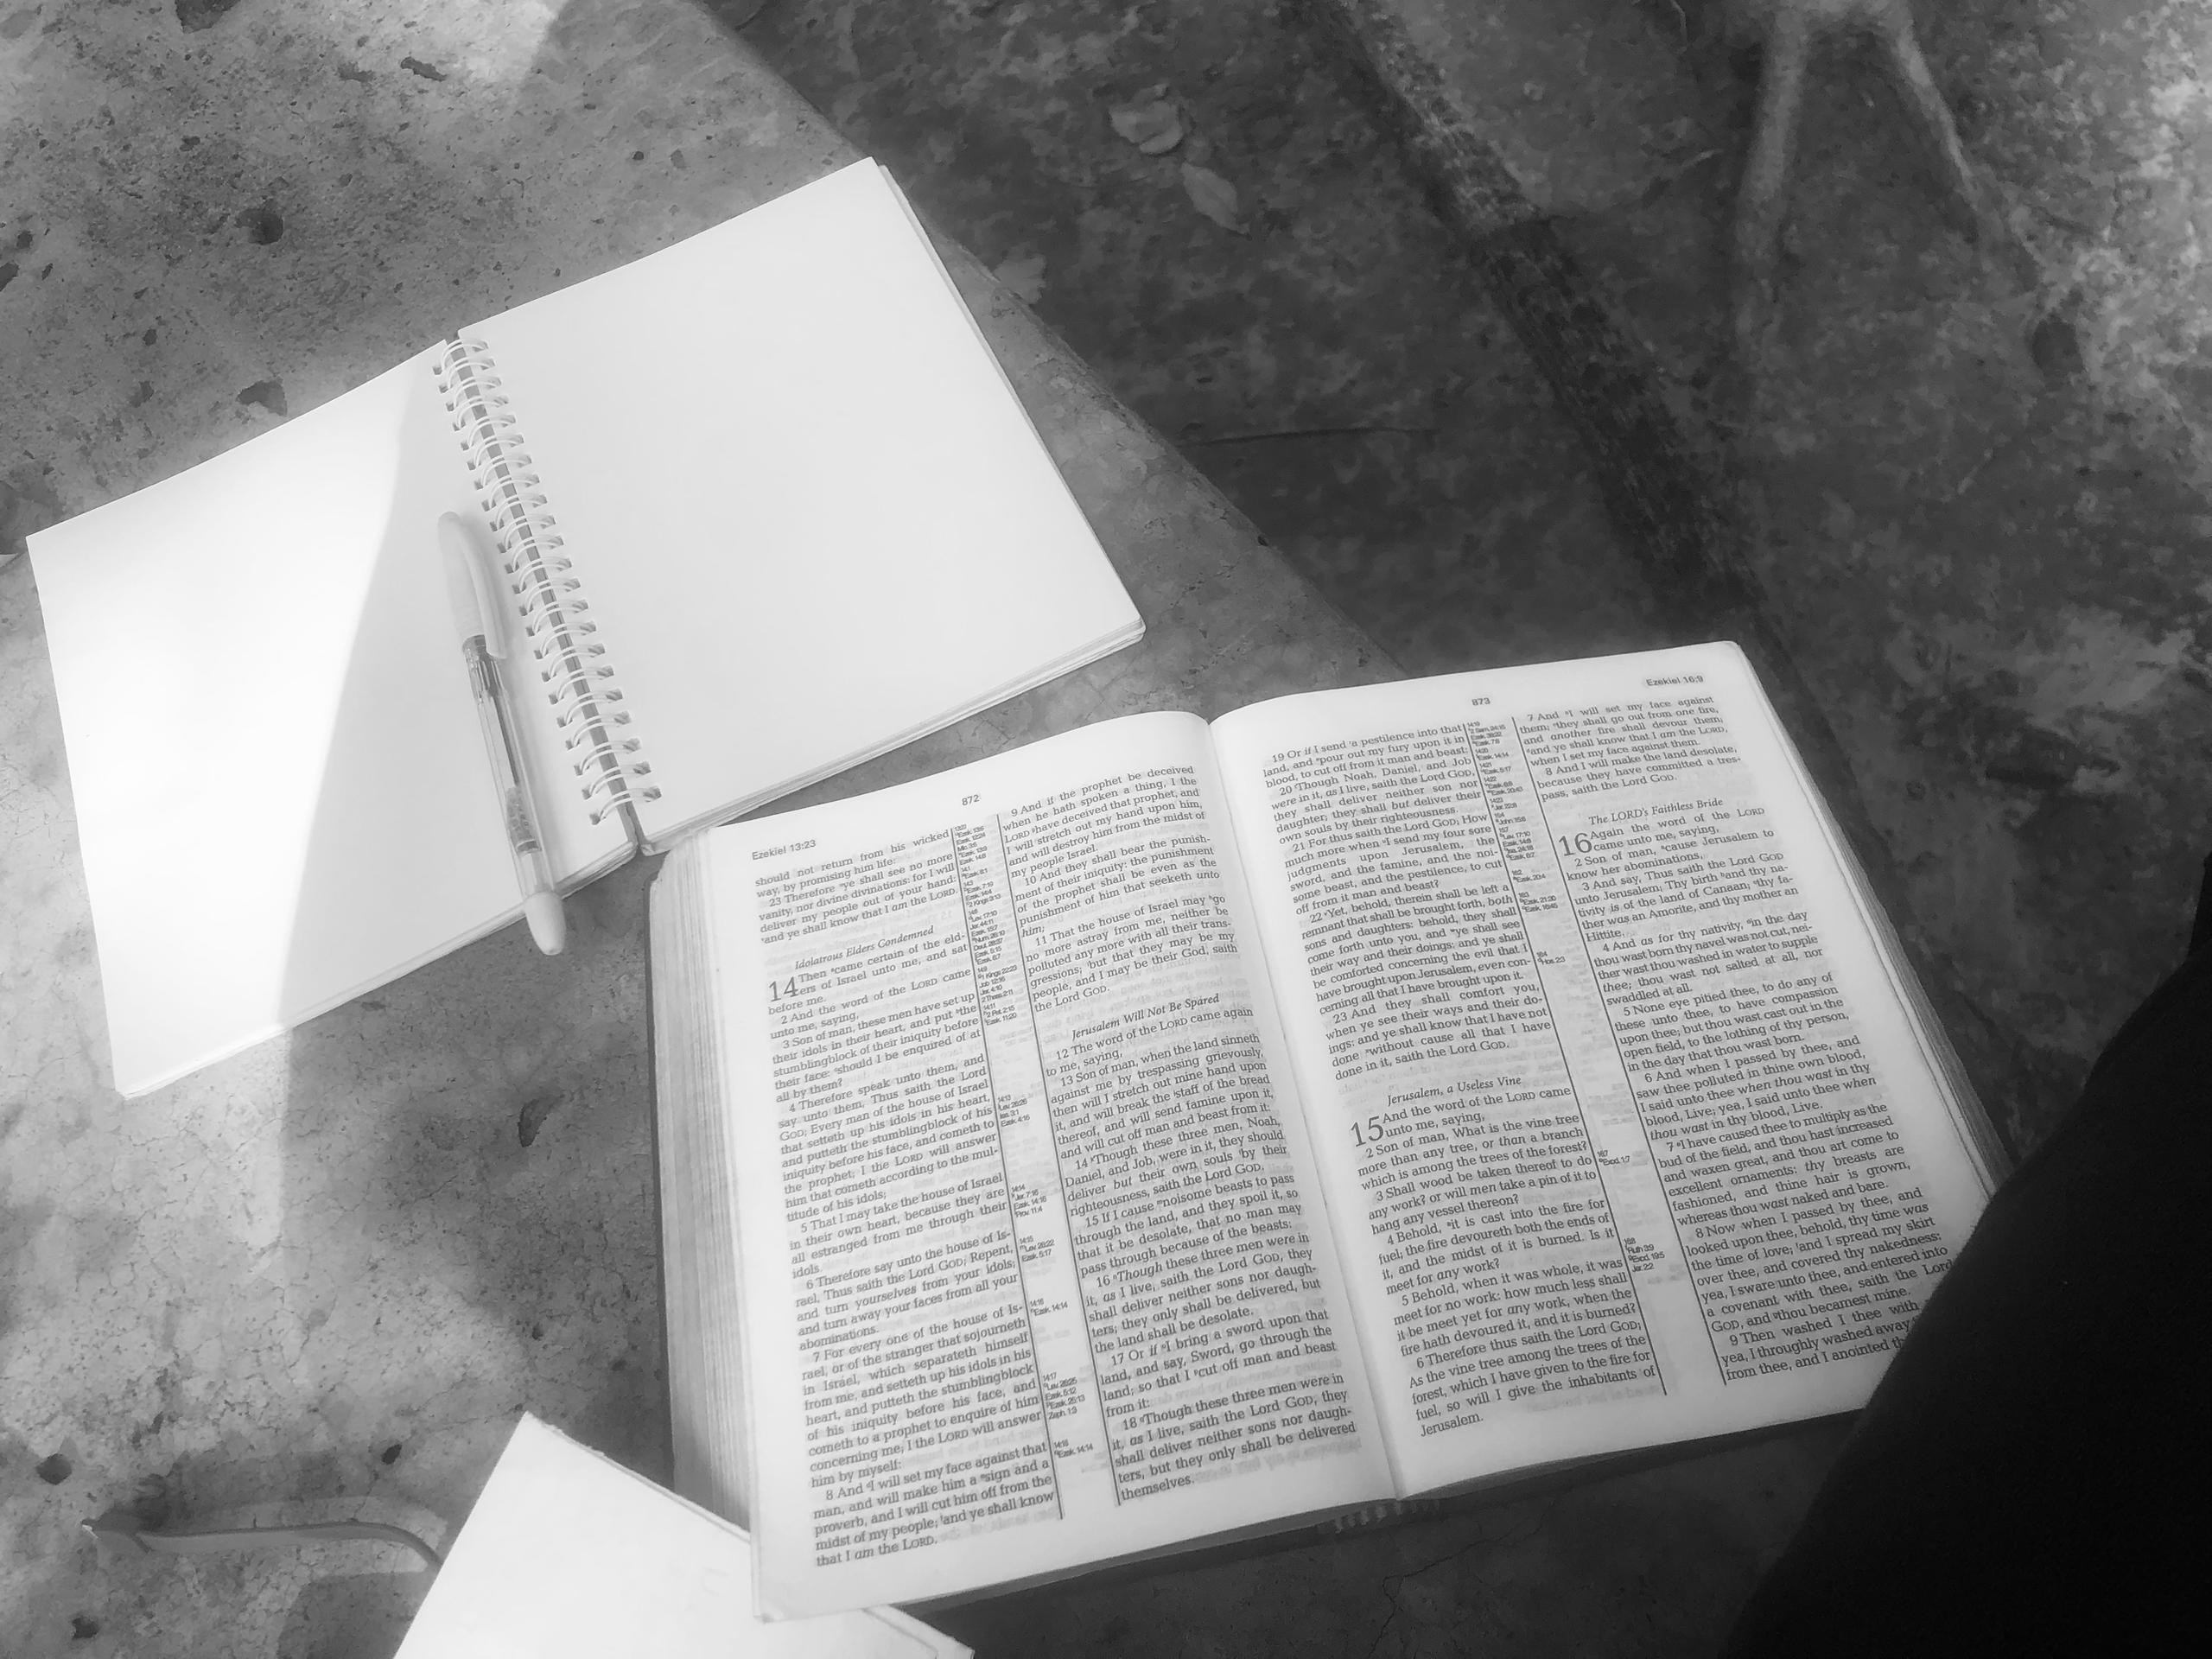 Ezekiel 13:23
872
should not return from his wicked
way, by promising him life:
23 Therefore ye shall see no more
vanity, nor divine divinations: for I will
deliver my people out of your hand:
and ye shall know that I am the LORD.
Idolatrous Elders Condemned
14 Then came certain of the eld-
ers of Israel unto me, and sat
before me.
2 And the word of the LORD came
unto me, saying,
3 Son of man, these men have set up
their idols in their heart, and put the
stumblingblock of their iniquity before
their face: should I be enquired of at
all by them?
4 Therefore speak unto them, and
say unto them, Thus saith the Lord
GOD; Every man of the house of Israel
that setteth up his idols in his heart,
and putteth the stumblingblock of his
iniquity before his face, and cometh to
the prophet; I the LORD will answer
him that cometh according to the mul-
titude of his idols;
5 That I may take the house of Israel
in their own heart, because they are
all estranged from me through their
idols.
6 Therefore say unto the house of Is-
rael, Thus saith the Lord GOD; Repent,
and turn yourselves from your idols;
and turn away your faces from all your
abominations.
7 For every one of the house of Is-
rael, or of the stranger that sojourneth
in Israel, which separateth himself
from me, and setteth up his idols in his
heart, and putteth the stumblingblock
of his iniquity before his face, and
cometh to a prophet to enquire of him
concerning me; I the LORD will answer
him by myself:
8 And I will set my face against that
man, and will make him a sign and a
proverb, and I will cut him off from the
midst of my people; and ye shall know
that I am the LORD.
9 And if the prophet be deceived
when he hath spoken a thing, I the
LORD have deceived that prophet, and
I will stretch out my hand upon him,
and will destroy him from the midst of
my people Israel.
10 And they shall bear the punish-
ment of their iniquity: the punishment
of the prophet shall be even as the
punishment of him that seeketh unto
him;
11 That the house of Israel may go
no more astray from me, neither be
polluted any more with all their trans-
gressions; but that they may be my
people, and I may be their God, saith
the Lord GOD.
Jerusalem Will Not Be Spared
12 The word of the LORD came again
to me, saying,
13 Son of man, when the land sinneth
against me by trespassing grievously,
then will I stretch out mine hand upon
it, and will break the staff of the bread
thereof, and will send famine upon it,
and will cut off man and beast from it:
14 Though these three men, Noah,
Daniel, and Job, were in it, they should
deliver but their own souls by their
righteousness, saith the Lord GOD.
15 If I cause noisome beasts to pass
through the land, and they spoil it, so
that it be desolate, that no man may
pass through because of the beasts:
16 Though these three men were in
it, as I live, saith the Lord GOD, they
shall deliver neither sons nor daugh-
ters; they only shall be delivered, but
the land shall be desolate.
17 Or if I bring a sword upon that
land, and say, Sword, go through the
land; so that I cut off man and beast
from it:
18 Though these three men were in
it, as I live, saith the Lord GOD, they
shall deliver neither sons nor daugh-
ters, but they only shall be delivered
themselves.
873
Ezekiel 16:9
19 Or if I send a pestilence into that
land, and pour out my fury upon it in
blood, to cut off from it man and beast:
20 Though Noah, Daniel, and Job
were in it, as I live, saith the Lord GOD,
they shall deliver neither son nor
daughter; they shall but deliver their
own souls by their righteousness.
21 For thus saith the Lord GOD; How
much more when I send my four sore
judgments upon Jerusalem, the
sword, and the famine, and the noi-
some beast, and the pestilence, to cut
off from it man and beast?
22 Yet, behold, therein shall be left a
remnant that shall be brought forth, both
sons and daughters: behold, they shall
come forth unto you, and ye shall see
their way and their doings: and ye shall
be comforted concerning the evil that I
have brought upon Jerusalem, even con-
cerning all that I have brought upon it.
23 And they shall comfort you,
when ye see their ways and their do-
ings: and ye shall know that I have not
done without cause all that I have
done in it, saith the Lord GOD.
Jerusalem, a Useless Vine
15 And the word of the LORD came
unto me, saying,
2 Son of man, What is the vine tree
more than any tree, or than a branch
which is among the trees of the forest?
3 Shall wood be taken thereof to do
any work? or will men take a pin of it to
hang any vessel thereon?
4 Behold, it is cast into the fire for
fuel; the fire devoureth both the ends of
it, and the midst of it is burned. Is it
meet for any work?
5 Behold, when it was whole, it was
meet for no work: how much less shall
it be meet yet for any work, when the
fire hath devoured it, and it is burned?
6 Therefore thus saith the Lord GOD;
As the vine tree among the trees of the
forest, which I have given to the fire for
fuel, so will I give the inhabitants of
Jerusalem.
7 And I will set my face against
them; they shall go out from one fire,
and another fire shall devour them;
and ye shall know that I am the LORD,
when I set my face against them.
8 And I will make the land desolate,
because they have committed a tres-
pass, saith the Lord GOD.
The LORD's Faithless Bride
16 Again the word of the LORD
came unto me, saying,
2 Son of man, cause Jerusalem to
know her abominations,
3 And say, Thus saith the Lord GOD
unto Jerusalem; Thy birth and thy na-
tivity is of the land of Canaan; thy fa-
ther was an Amorite, and thy mother an
Hittite.
4 And as for thy nativity, in the day
thou wast born thy navel was not cut, nei-
ther wast thou washed in water to supple
thee; thou wast not salted at all, nor
swaddled at all.
5 None eye pitied thee, to do any of
these unto thee, to have compassion
upon thee; but thou wast cast out in the
open field, to the lothing of thy person,
in the day that thou wast born.
6 And when I passed by thee, and
saw thee polluted in thine own blood,
I said unto thee when thou wast in thy
blood, Live; yea, I said unto thee when
thou wast in thy blood, Live.
7 I have caused thee to multiply as the
bud of the field, and thou hast increased
and waxen great, and thou art come to
excellent ornaments: thy breasts are
fashioned, and thine hair is grown,
whereas thou wast naked and bare.
8 Now when I passed by thee, and
looked upon thee, behold, thy time was
the time of love; and I spread my skirt
over thee, and covered thy nakedness:
yea, I sware unto thee, and entered into
a covenant with thee, saith the Lord
GOD, and thou becamest mine.
9 Then washed I thee with
yea, I throughly washed away
from thee, and I anointed